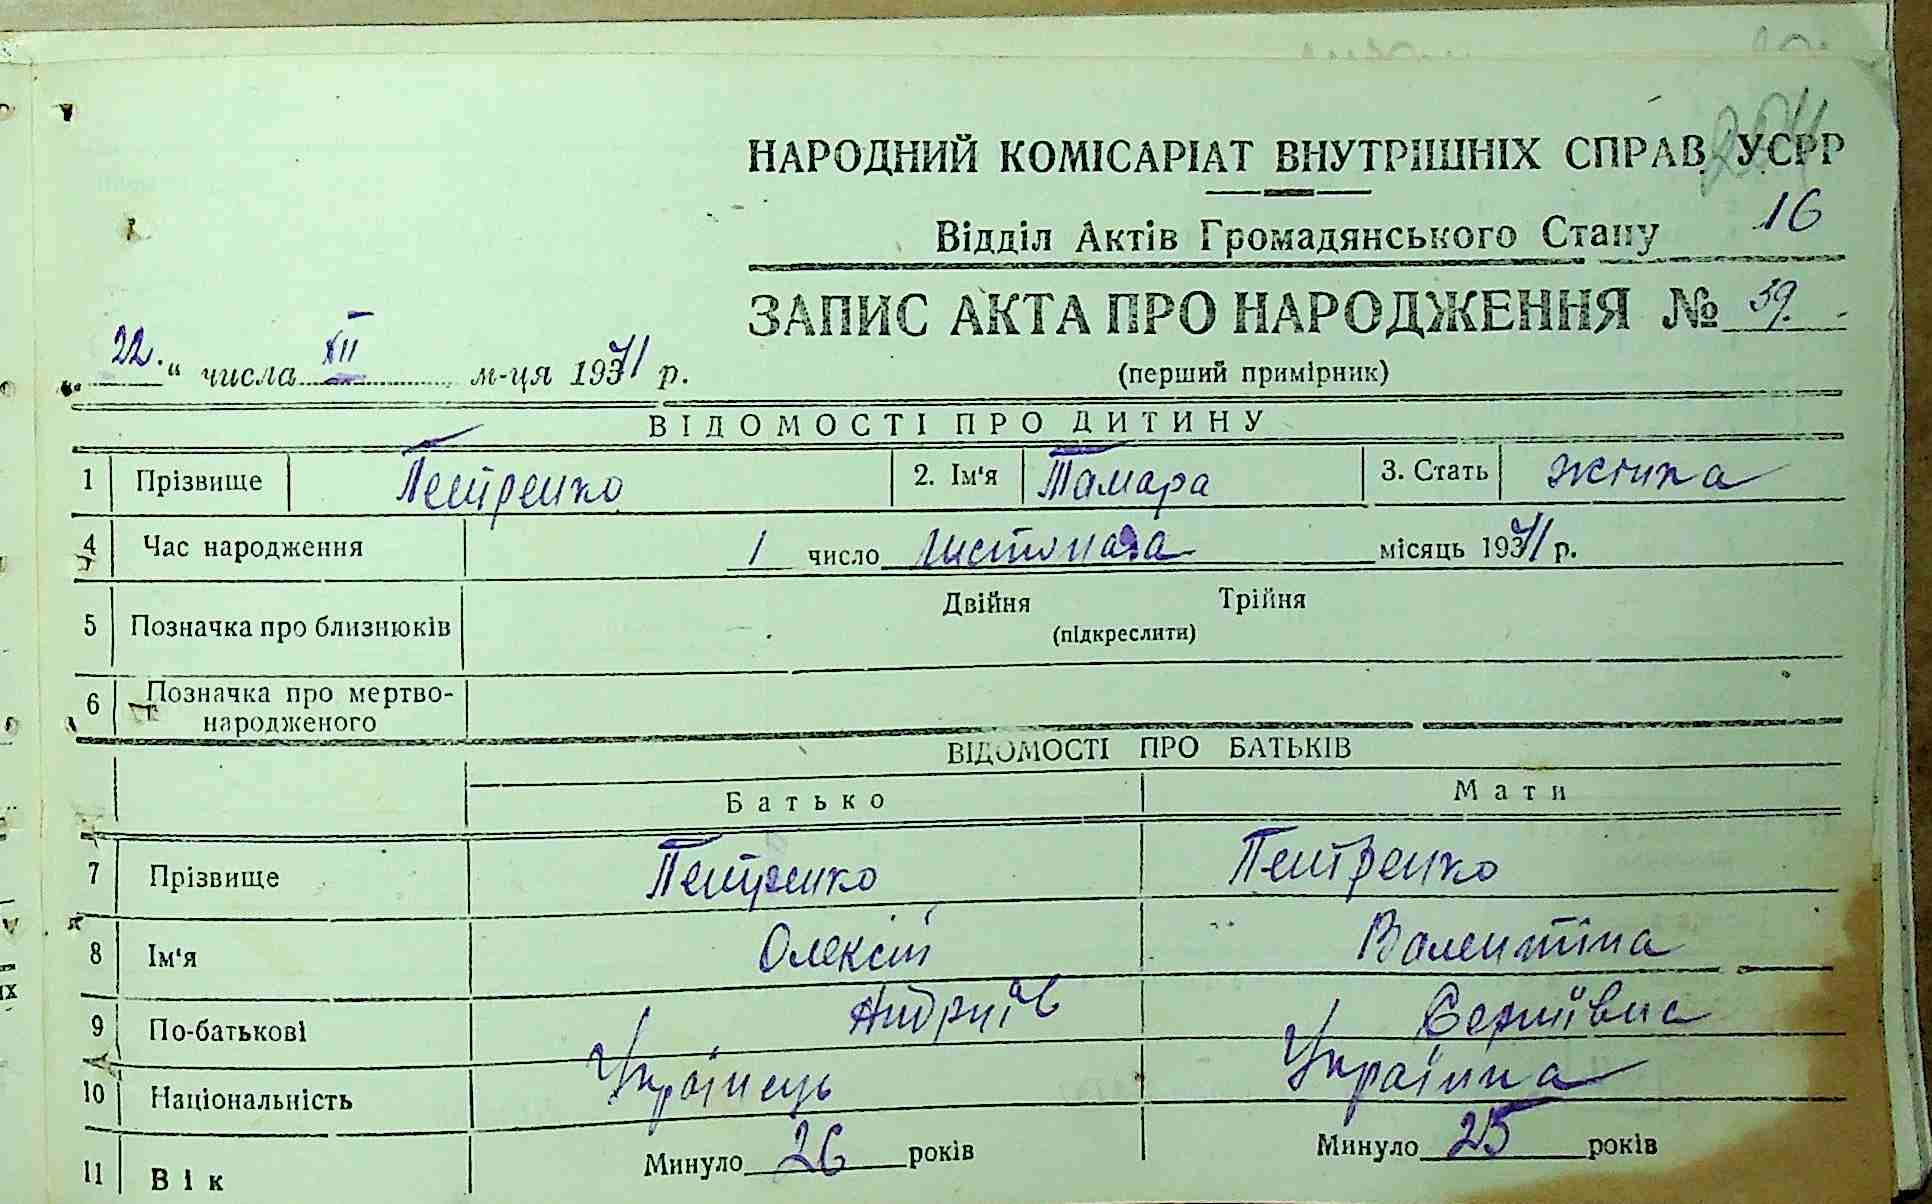 НАРОДНИЙ КОМІСАРІАТ ВНУТРІШНІХ СПРАВ УСРР
Відділ Актів Громадянського Стану 16
ЗАПИС АКТА ПРО НАРОДЖЕННЯ № 39.
„22.“ числа XII м-ця 1941 р.
(перший примірник)
ВІДОМОСТІ ПРО ДИТИНУ
1 Прізвище Петренко 2. Ім'я Тамара 3. Стать жінка
4 Час народження 1 число листопада місяць 1941 р.
5 Позначка про близнюків Двійня Трійня
(підкреслити)
6 Позначка про мертво-
народженого
ВІДОМОСТІ ПРО БАТЬКІВ
Батько Мати
7 Прізвище Петренко Петренко
8 Ім'я Олексій Валентіна
9 По-батькові Андріїв Сергіївна
10 Національність Українець Українка
11 Вік Минуло 26 років Минуло 25 років